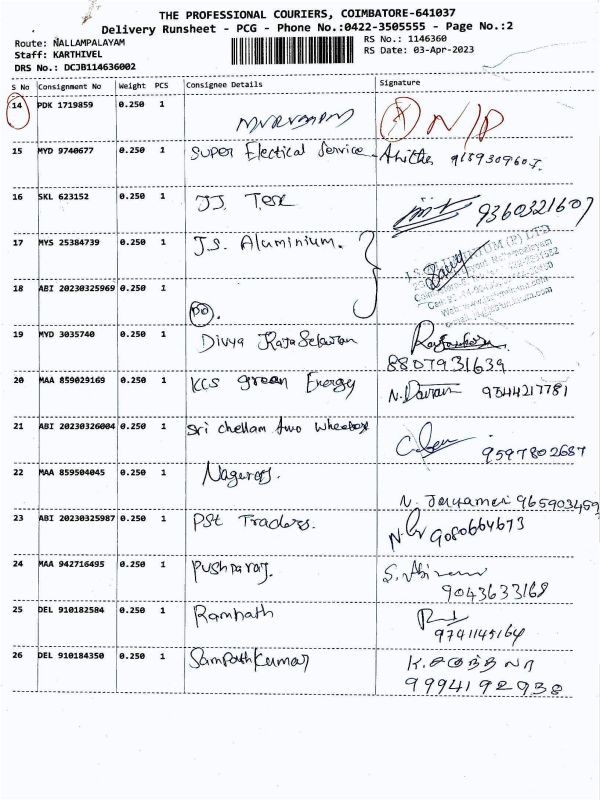 THE PROFESSIONAL COURIERS, COIMBATORE-641037
Delivery Runsheet - PCG - Phone No.:0422-3505555 - Page No.:2
Route: NALLAMPALAYAM
RS No.: 1146360
Staff: KARTHIVEL
RS Date: 03-Apr-2023
DRS No.: DCJB114636002
S No Consignment No Weight PCS Consignee Details Signature
14 PDK 1719859 0.250 1
N/D
15 MYD 9740677 0.250 1 Super Electical Service
16 SKL 623152 0.250 1 JJ. Tex
9360321607
17 MYS 25384739 0.250 1 J.S. Aluminium.
18 ABI 20230325969 0.250 1
DO.
19 MYD 3035740 0.250 1 Divya RajaSelvaran
8807931639
20 MAA 859029169 0.250 1 KCS green Energy
9344217781
21 ABI 20230326004 0.250 1 Sri chellam two wheeler
9597802687
22 MAA 859504045 1 Nagaraj.
965903459
23 ABI 20230325987 0.250 1 PSt Traders.
9080664673
24 MAA 942716495 0.250 1 Pushparaj.
9043633168
25 DEL 910182584 0.250 1 Ramnath
9741145164
26 DEL 910184350 0.250 1 Sampathkumar
9994192938